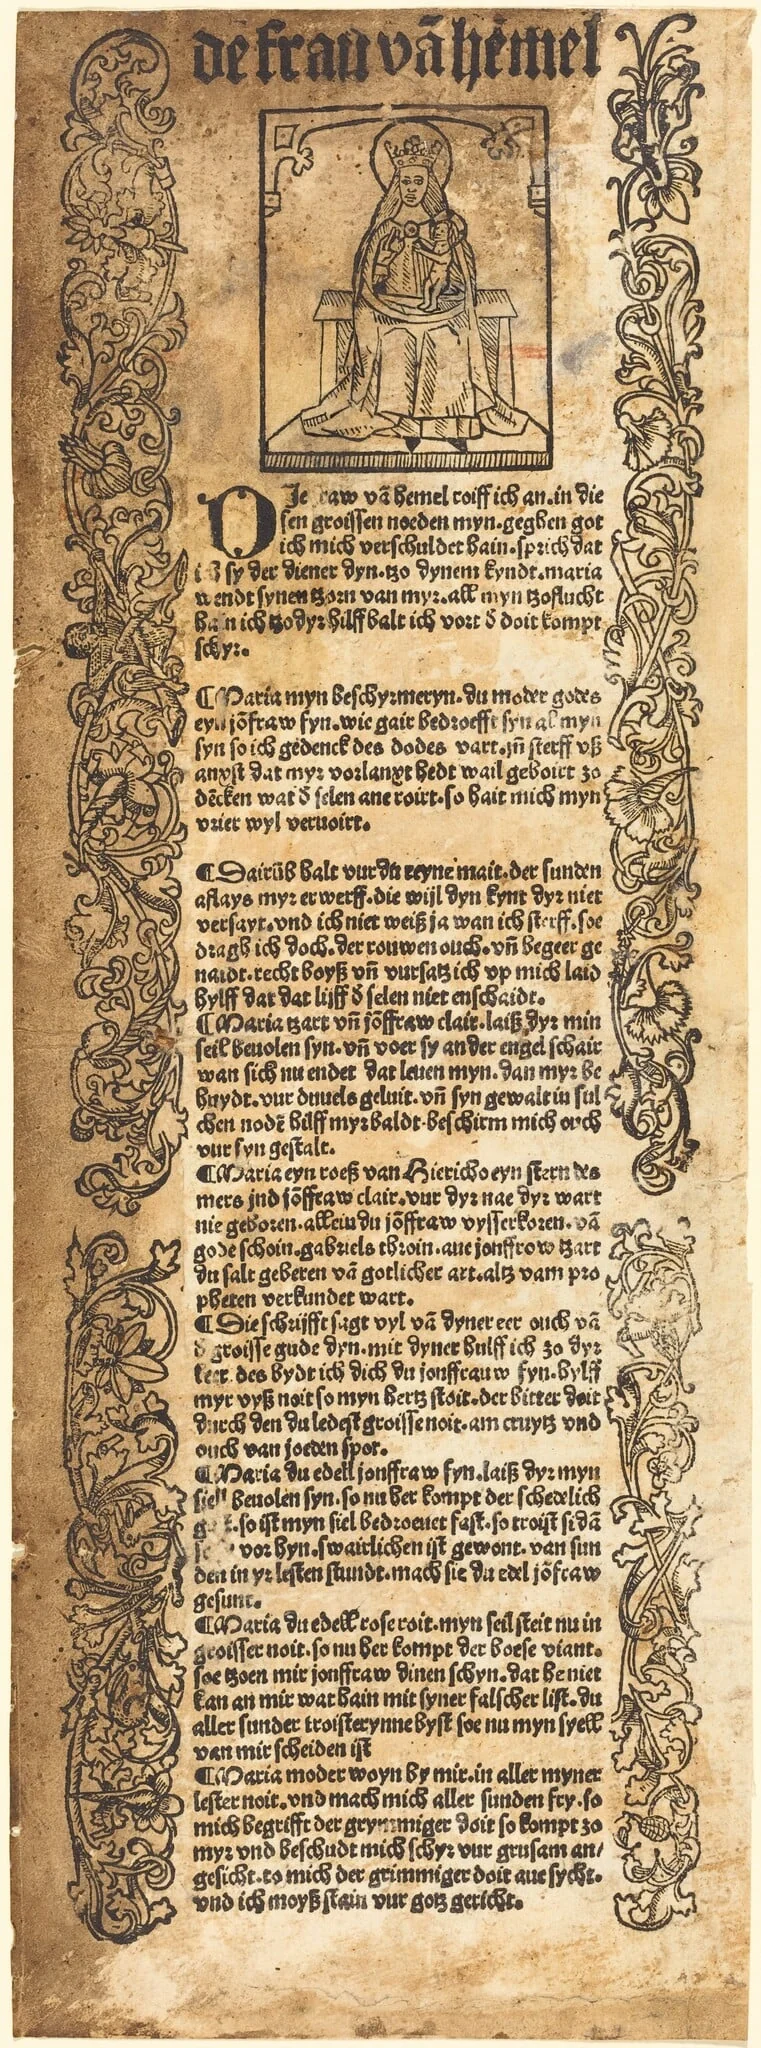 de frau vā hēmel
O Je raw vā hemel roiff ich an. in die
sen groissen noeden myn. gegben got
ich mich verschuldet hain. sprich dat
ich sy der diener dyn. tzo dynem kyndt. maria
wendt synen tzorn van myr. all myn tzoflucht
ha n ich tzo dyr hilff balt ich vort d̄ doit kompt
schyr.
¶ Maria myn beschyrmeryn. du moder godes
eyn jōfraw fyn. wie gair bedroefft syn al myn
syn so ich gedenck des dodes vart. jn̄ sterff vß
anxst dat myr vorlanxt hedt wail geboirt zo
dēcken wat d̄ selen ane roirt. so hait mich myn
vrier wyl veruoirt.
¶ Dairūb balt vur du reyne mait. der sunden
aflays myr erwerff. die wijl dyn kynt dyr niet
versayt. vnd ich niet weiß ja wan ich sterff. soe
dragh ich doch. der rouwen ouch. vn̄ begeer ge
naidt. recht boyß vn̄ vursatz ich vp mich laid
hylff dat dat lijff d̄ selen niet enschaidt.
¶ Maria tzart vn̄ jōffraw clair. laiß dyr min
seil beuolen syn. vn̄ voer sy an der engel schair
wan sich nu endet dat leuen myn. dan myr be
huydt. vur duuels geluit. vn̄ syn gewalt in sul
chen nodē hilff myr baldt. beschirm mich ouch
vur syn gestalt.
¶ Maria eyn roeß van Hiericho eyn stern des
mers jnd jōffraw clair. vur dyr nae dyr wart
nie geboren. allein du jōffraw vysserkoren. vā
gode schoin. gabriels throin. aue jonffrow tzart
du salt geberen vā gotlicher art. altz vam pro
pheten verkundet wart.
¶ Die schrijfft sagt vyl vā dyner eer ouch vā
d̄ groisse gude dyn. mit dyner hulff ich zo dyr
keer. des bydt ich dich du jonffrauw fyn. hylff
myr vyß noit so myn hertz stoit. der bitter doit
durch den du ledest groisse noit. am cruytz vnd
ouch van joeden spot.
¶ Maria du edell jonffraw fyn. laiß dyr myn
siell beuolen syn. so nu her kompt der schedlich
so ist myn siel bedroeuet fast. so troist si dā
vor hyn. swairlichen ist gewont. van sun
den in yr lesten stundt. mach sie du edel jōfraw
gesunt.
¶ Maria du edell rose roit. myn seil steit nu in
groisser noit. so nu her kompt der boese viant.
soe tzoen mir jonffraw dinen schyn. dat he niet
kan an mir wat hain mit syner falscher list. du
aller sunder troisterynne byst soe nu myn syell
van mir scheiden ist
¶ Maria moder woyn by mir. in aller myner
lester noit. vnd mach mich aller sunden fry. so
mich begrifft der grymmiger doit so kompt zo
myr vnd beschudt mich schyr vur grusam an/
gesicht. to mich der grimmiger doit ane sycht.
vnd ich moyß stain vur gotz gericht.